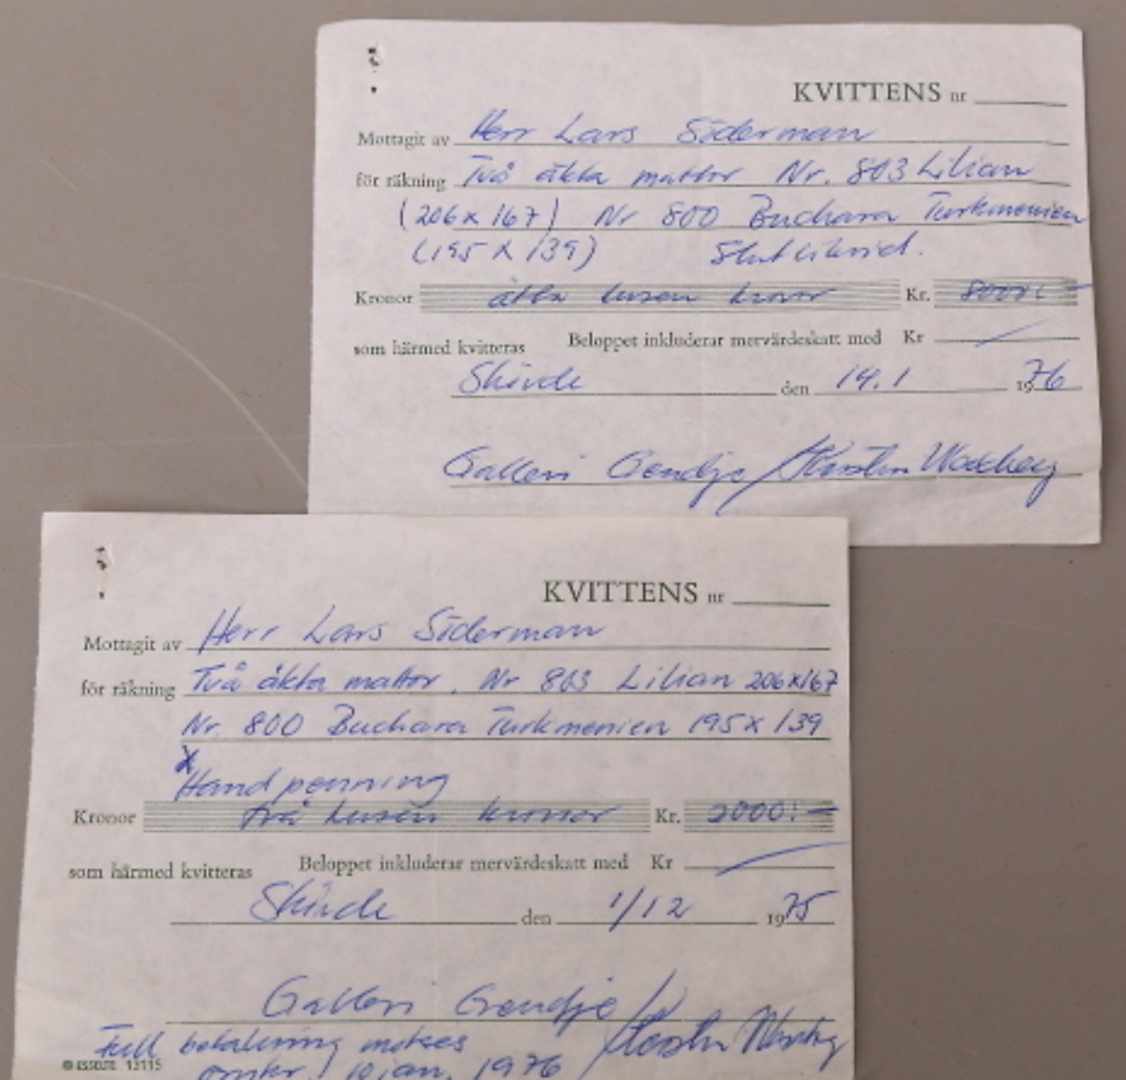 KVITTENS nr
Mottagit av Herr Lars Söderman
för räkning Två äkta mattor Nr. 803 Lilian
(206 x 167) Nr 800 Buchara Turkmenien
(195 x 139) Slutlikvid.
Kronor åtta tusen kronor Kr. 8000:-
som härmed kvitteras Beloppet inkluderar mervärdeskatt med Kr
Skövde den 14.1 1976
Galleri Gendje / Kerstin
KVITTENS nr
Mottagit av Herr Lars Söderman
för räkning Två äkta mattor. Nr 803 Lilian 206x167
Nr. 800 Buchara Turkmenien 195 x 139
x
Handpenning
Kronor två tusen kronor Kr. 2000:-
som härmed kvitteras Beloppet inkluderar mervärdeskatt med Kr
Skövde den 1/12 1975
Galleri Gendje / Kerstin
Full betalning mottges
© ESSELTE 13115 omkr. jan. 1976